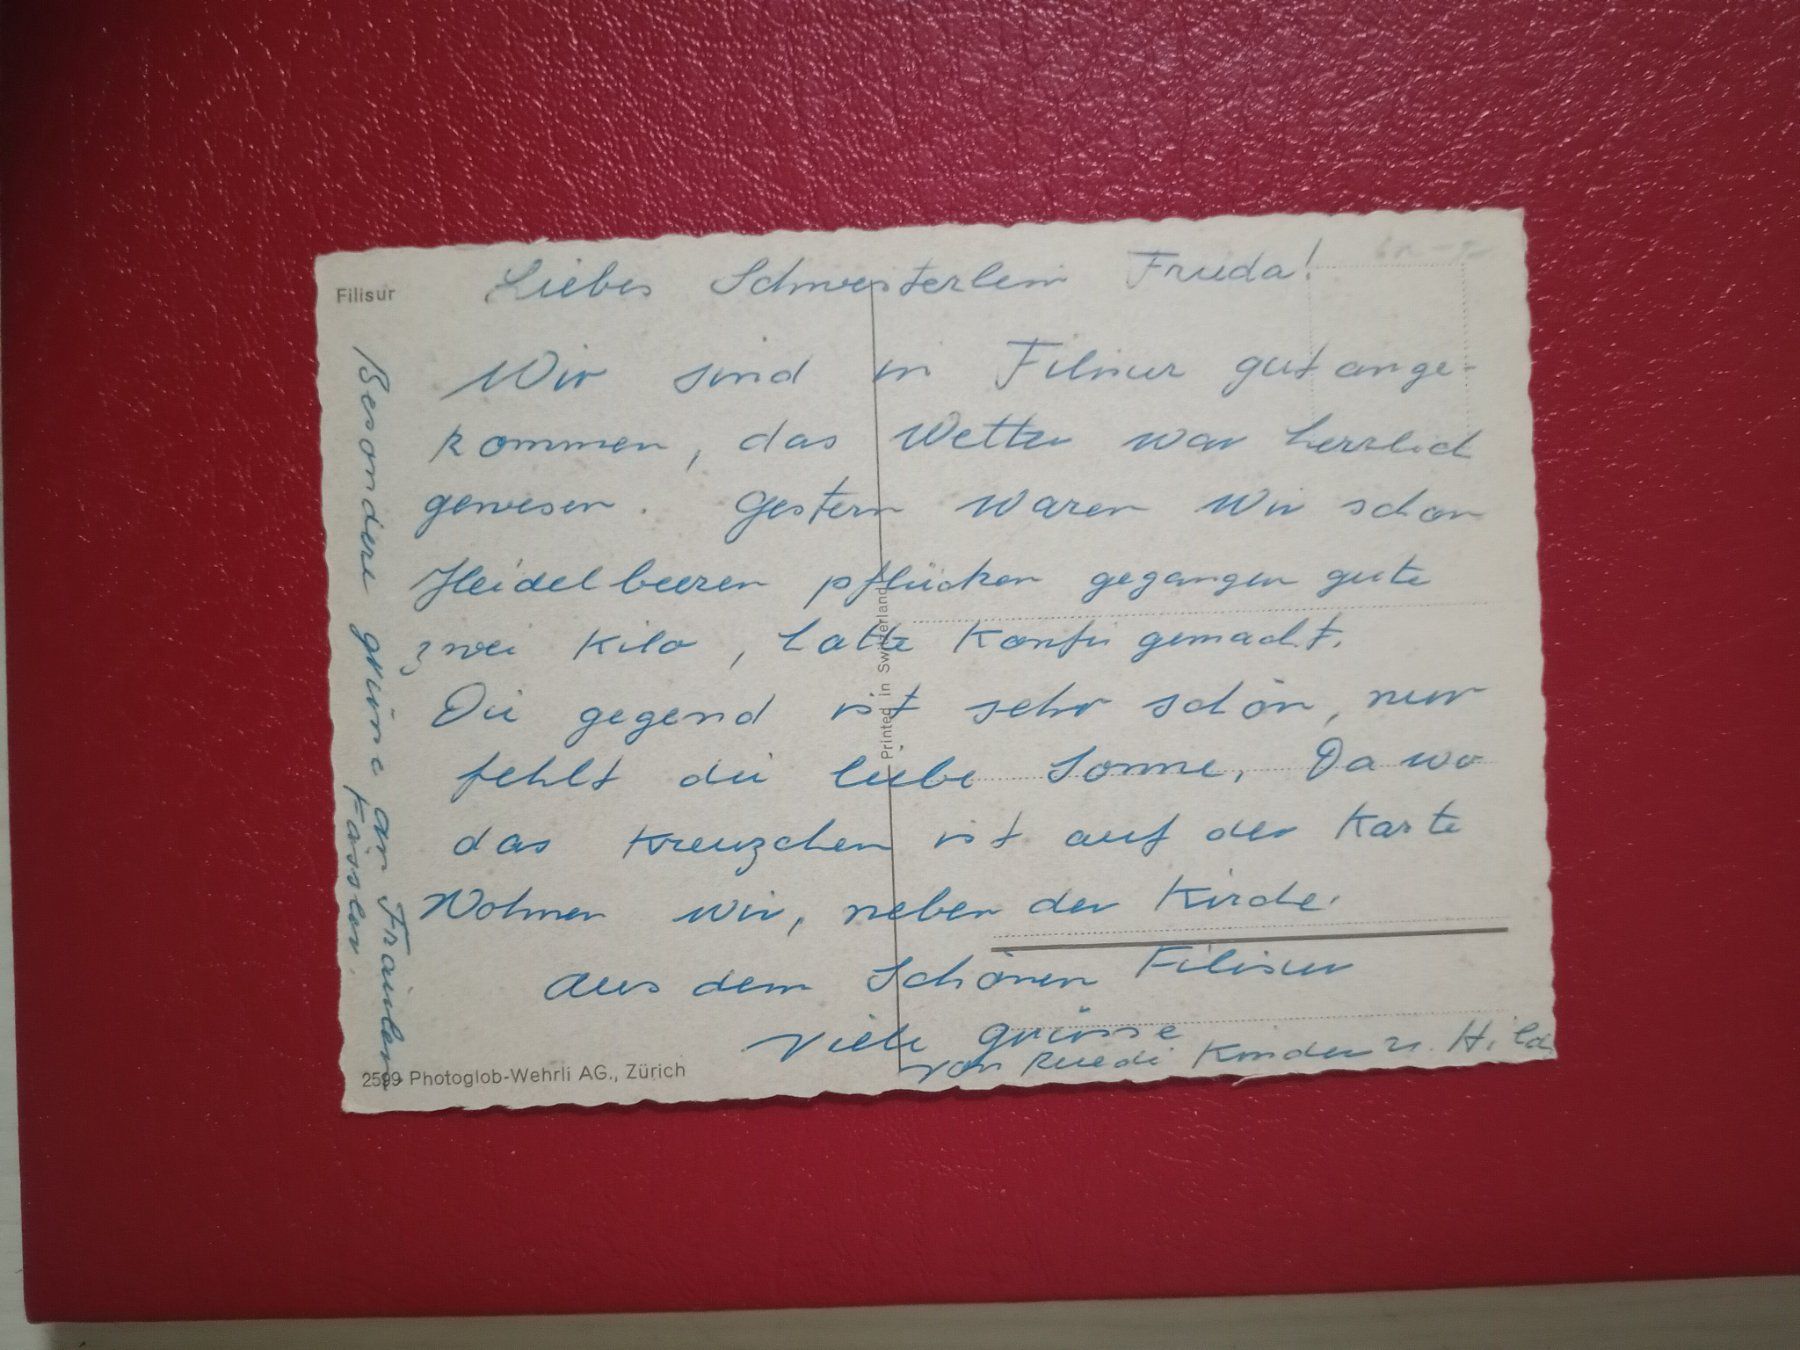 Filisur
Liebes Schwesterlein Frieda!
Wir sind in Filisur gut ange-
kommen, das Wetter war herrlich
gewesen. Gestern waren wir schon
Heidelbeeren pflücken gegangen gute
zwei Kilo, hatte Konfi gemacht.
Die gegend ist sehr schön, nur
fehlt die liebe Sonne. Da wo
das Kreuzchen ist auf der Karte
Wohnen wir, neben der Kirche.
Aus dem Schönen Filisur
viele grüsse
von Ruedi Kinder u. Hild
Besondere grüne an Fräulein
Fässler.
Printed in Switzerland
2599 Photoglob-Wehrli AG., Zürich